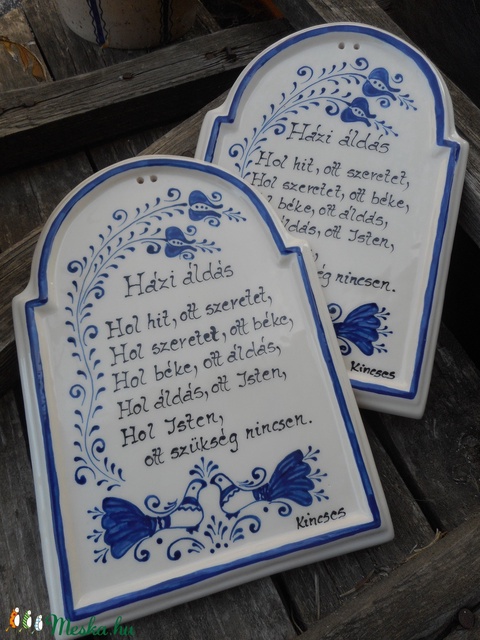 Házi áldás
Hol hit, ott szeretet,
Hol szeretet, ott béke,
Hol béke, ott áldás,
Hol áldás, ott Isten,
Hol Isten,
ott szükség nincsen.
Kincses
Házi áldás
Hol hit, ott szeretet,
Hol szeretet, ott béke,
béke, ott áldás,
áldás, ott Isten,
nincsen.
Kincses
Meska.hu